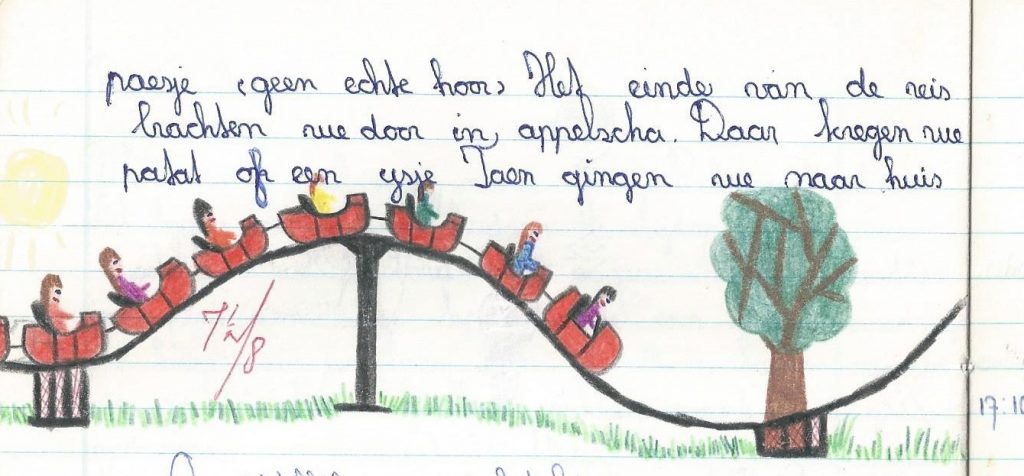 paesje (geen echte hoor) Het einde van de reis
brachten we door in appelscha. Daar kregen we
patat of een ysje Toen gingen we naar huis
7½/8